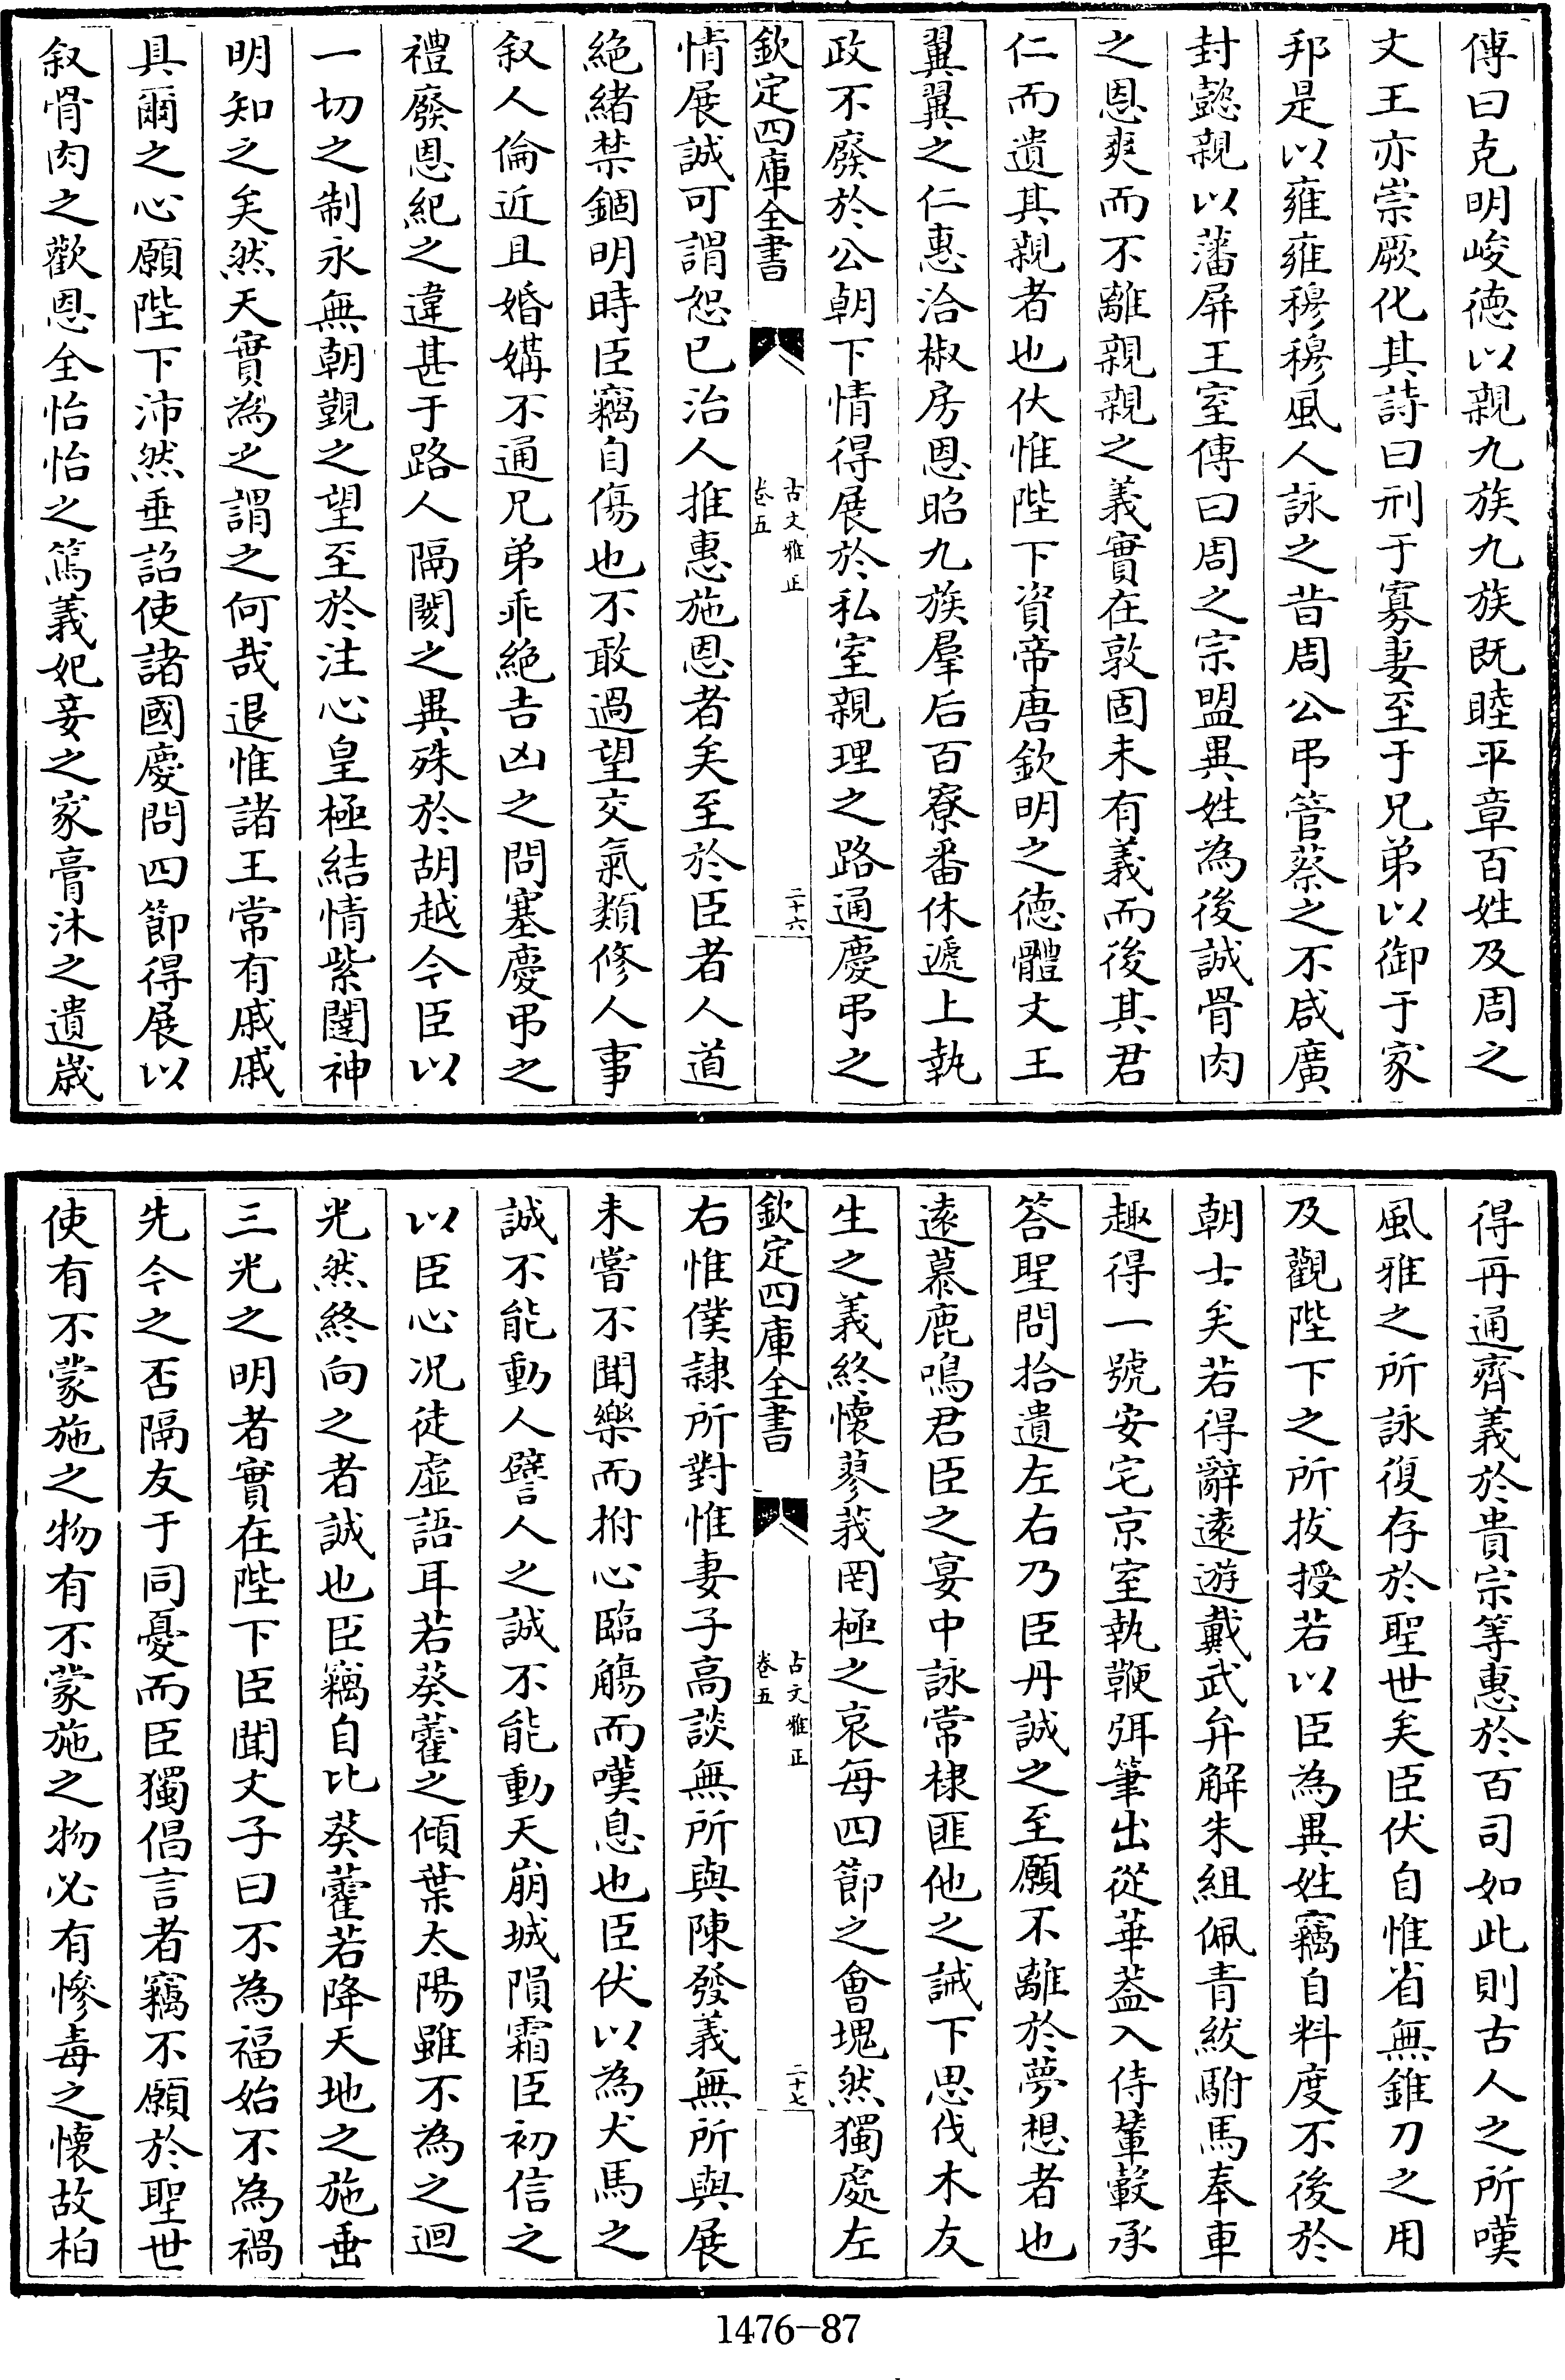 傳曰克明峻德以親九族九族既睦平章百姓及周之
文王亦崇厥化其詩曰刑于寡妻至于兄弟以御于家
邦是以雍雍穆穆風人詠之昔周公弔管蔡之不咸廣
封懿親以藩屏王室傳曰周之宗盟異姓為後誠骨肉
之恩爽而不離親親之義實在敦固未有義而後其君
仁而遺其親者也伏惟陛下資帝唐欽明之德體文王
翼翼之仁惠洽椒房恩昭九族羣后百寮番休遞上執
政不廢於公朝下情得展於私室親理之路通慶弔之
欽定四庫全書
古文雅正
卷五
二十六
情展誠可謂恕已治人推惠施恩者矣至於臣者人道
絕緒禁錮明時臣竊自傷也不敢過望交氣類修人事
叙人倫近且婚媾不通兄弟乖絕吉凶之問塞慶弔之
禮廢恩紀之違甚于路人隔閡之異殊於胡越今臣以
一切之制永無朝覲之望至於注心皇極結情紫闥神
明知之矣然天實為之謂之何哉退惟諸王常有戚戚
具爾之心願陛下沛然垂詔使諸國慶問四節得展以
叙骨肉之歡恩全怡怡之篤義妃妾之家膏沐之遺歲
得再通齊義於貴宗等惠於百司如此則古人之所嘆
風雅之所詠復存於聖世矣臣伏自惟省無錐刀之用
及觀陛下之所拔授若以臣為異姓竊自料度不後於
朝士矣若得辭遠遊戴武弁解朱組佩青紱駙馬奉車
趣得一號安宅京室執鞭珥筆出從華蓋入侍輦轂承
答聖問拾遺左右乃臣丹誠之至願不離於夢想者也
遠慕鹿鳴君臣之宴中詠常棣匪他之誡下思伐木友
生之義終懷蓼莪罔極之哀每四節之會塊然獨處左
欽定四庫全書
古文雅正
卷五
二十七
右惟僕隸所對惟妻子高談無所與陳發義無所與展
未嘗不聞樂而拊心臨觴而嘆息也臣伏以為犬馬之
誠不能動人譬人之誠不能動天崩城隕霜臣初信之
以臣心況徒虛語耳若葵藿之傾葉太陽雖不為之迴
光然終向之者誠也臣竊自比葵藿若降天地之施垂
三光之明者實在陛下臣聞文子曰不為福始不為禍
先今之否隔友于同憂而臣獨倡言者竊不願於聖世
使有不蒙施之物有不蒙施之物必有慘毒之懷故柏
1476-87